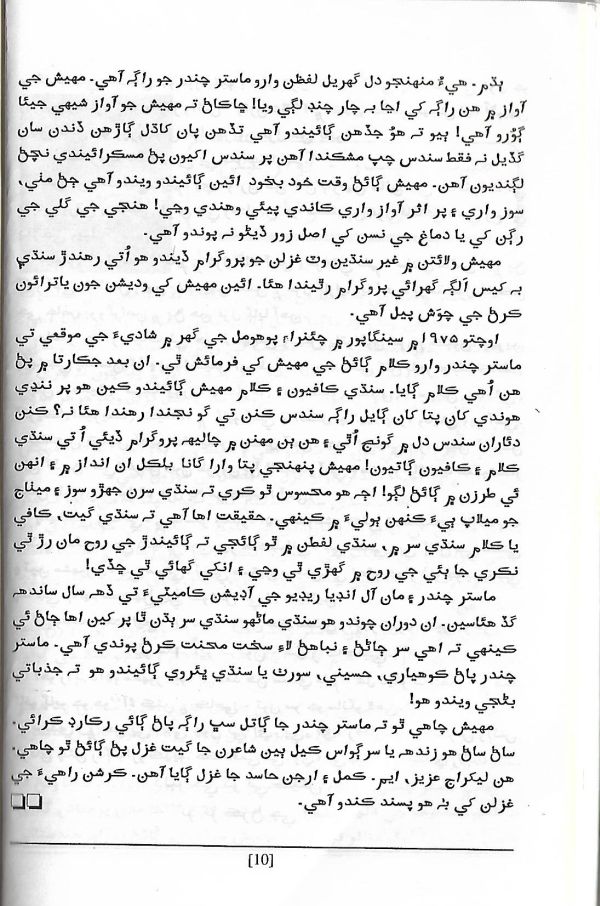 ٻڏم. هيءُ منهنجو دل گهريل لفظن وارو ماستر چندر جو راڳ آهي. مهيش جي
آواز ۾ هن راڳ کي اڃا به چار چنڊ لڳي ويا! ڇاڪاڻ ته مهيش جو آواز شيهي جيئا
ڳورو آهي! ٻيو ته هوُ جڏهن ڳائيندو آهي تڏهن پان کاڌل ڳاڙهن ڏندن سان
گڏيل نه فقط سندس چپ مشڪندا آهن پر سندس اکيون پڻ مسڪرائيندي نچڻ
لڳنديون آهن. مهيش ڳائڻ وقت خود بخود ائين ڳائيندو ويندو آهي ڄڻ مني،
سوز واري ۽ پر اثر آواز واري ڪاندي پيئي وهندي وڃي! هنجي جي گلي جي
رڳن کي يا دماغ جي نسن کي اصل زور ڏيڻو نه پوندو آهي.
مهيش ولائتن ۾ غير سنڌين وٽ غزلن جو پروگرام ڏيندو هو اُتي رهندڙ سنڌي
به کيس الڳ گهرائي پروگرام رٿيندا هئا. ائين مهيش کي وديشن جون ياترائون
ڪرڻ جي چوَش پيل آهي.
اوچتو ١٩٧٥ ۾ سينگاپور ۾ چئنراءِ پوهومل جي گهر ۾ شاديءَ جي موقعي تي
ماستر چندر وارو ڪلام ڳائڻ جي مهيش کي فرمائش ٿي. ان بعد جڪارتا ۾ پڻ
هن اُهي ڪلام ڳايا. سنڌي ڪافيون ۽ ڪلام مهيش ڳائيندو ڪين هو پر ننڍي
هوندي کان پتا کان ڳايل راڳ سندس ڪنن تي گونجندا رهندا هئا نہ؟ ڪنن
دئاران سندس دل ۾ گونج اُٿي ۽ هن ٻن مهنن ۾ چاليهه پروگرام ڏيئي اُتي سنڌي
ڪلام ۽ ڪافيون ڳاتيون! مهيش پنهنجي پتا وارا گانا بلڪل ان انداز ۾ ۽ انهن
ئي طرزن ۾ ڳائڻ لڳو! اڄ هو محسوس ٿو ڪري ته سنڌي سرن جهڙو سوز ۽ ميٺاج
جو ميلاپ ٻيءَ ڪنهن ٻوليءَ ۾ ڪينهي. حقيقت اها آهي ته سنڌي گيت، ڪافي
يا ڪلام سنڌي سر ۾، سنڌي لفظن ۾ ٿو ڳائجي ته ڳائيندڙ جي روح مان رڙ ٿي
نڪري جا ٻئي جي روح ۾ گهڙي ٿي وڃي ۽ انکي گهائي ٿي ڇڏي!
ماستر چندر ۽ مان آل انڊيا ريڊيو جي آڊيشن ڪاميٽيءَ تي ڏهه سال ساندهه
گڏ هئاسين. ان دوران چوندو هو سنڌي ماڻهو سنڌي سر ٻڌن ٿا پر ڪين اها ڄاڻ ئي
ڪينهي ته اهي سر ڄاڻڻ ۽ نباهڻ لاءِ سخت محنت ڪرڻ پوندي آهي. ماستر
چندر پاڻ ڪوهياري، حسيني، سورٺ يا سنڌي ڀئروي ڳائيندو هو ته جذباتي
بڻجي ويندو هو!
مهيش چاهي ٿو ته ماستر چندر جا ڳاتل سڀ راڳ پاڻ ڳائي رڪارڊ ڪرائي.
ساڻ ساڻ هو زنده يا سرڳواس ڪيل ٻين شاعرن جا گيت غزل پڻ ڳائڻ ٿو چاهي.
هن ليکراج عزيز، ايم. ڪمل ۽ ارجن حاسد جا غزل ڳايا آهن. ڪرشن راهيءَ جي
غزلن کي به هو پسند ڪندو آهي.
[10]